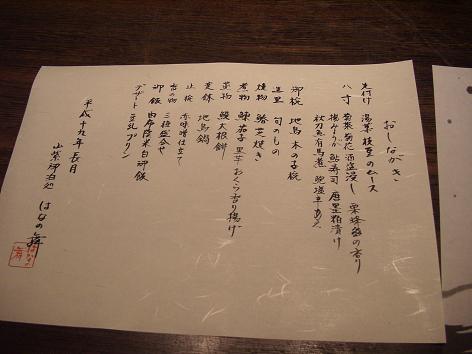 おしながき
先付け 湯葉 枝豆のムース
八寸 菊菜菊花酒盗浸し 栗 の香り
揚みょうが 鮎寿司 唐墨粕漬け
秋刀魚有馬煮 鮑塩辛あえ
御椀 地鳥 木の子椀
造里 旬のもの
焼物 鯵芝焼き
煮物 鰊茄子 里芋おくら香り揚げ
蒸物 鰻大根餅
進鉢 地鳥鍋
止椀 赤味噌仕立て
香の物 三種盛合せ
御飯 白御飯
デザート 豆乳プリン
平成十九年長月
はなの舞